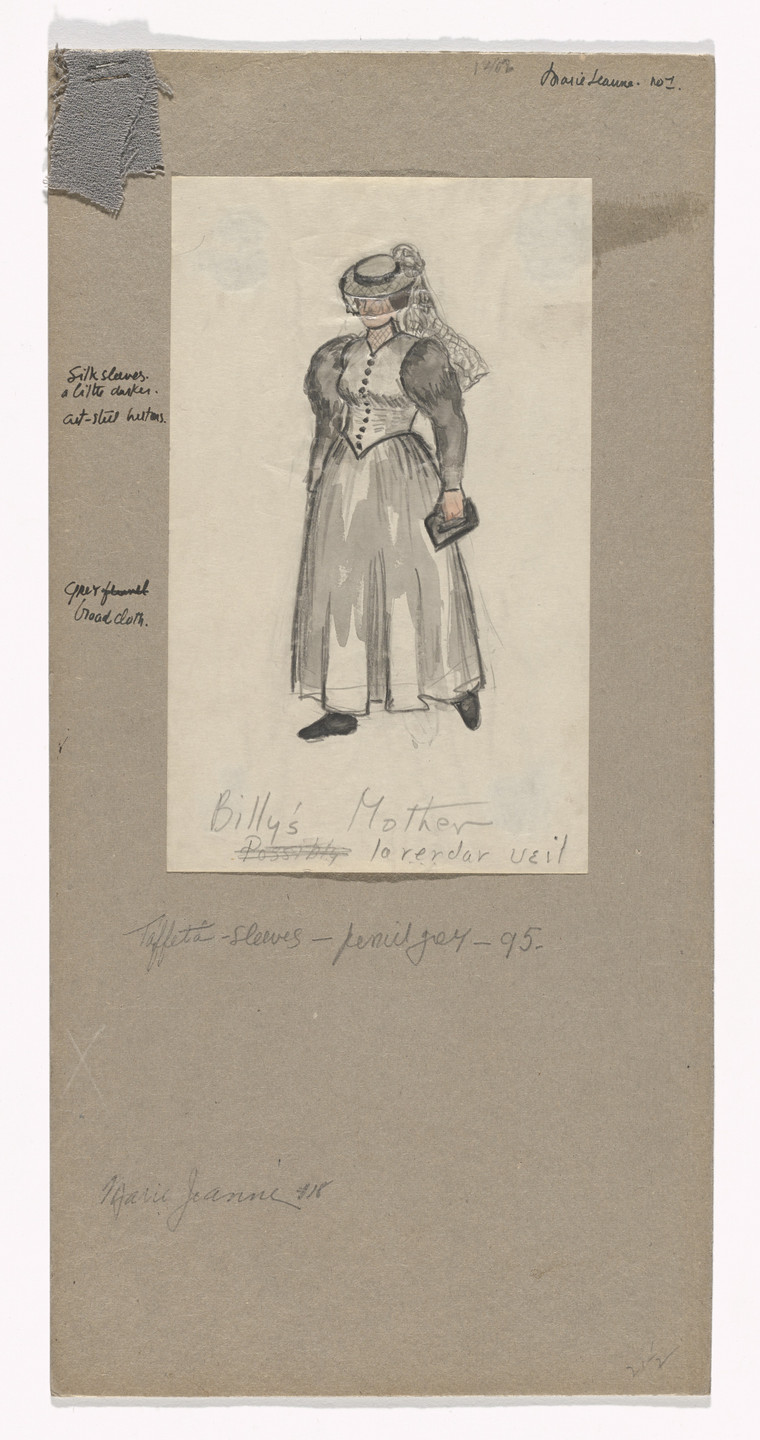 Marie Jeanne. no 1.
Silk sleeves.
a little darker.
cut-steel buttons.
Grey flannel
broad cloth.
Billy's Mother
Possibly laverdar veil
Taffeta - sleeves - pencil gray - 95.
Marie Jeanne #18